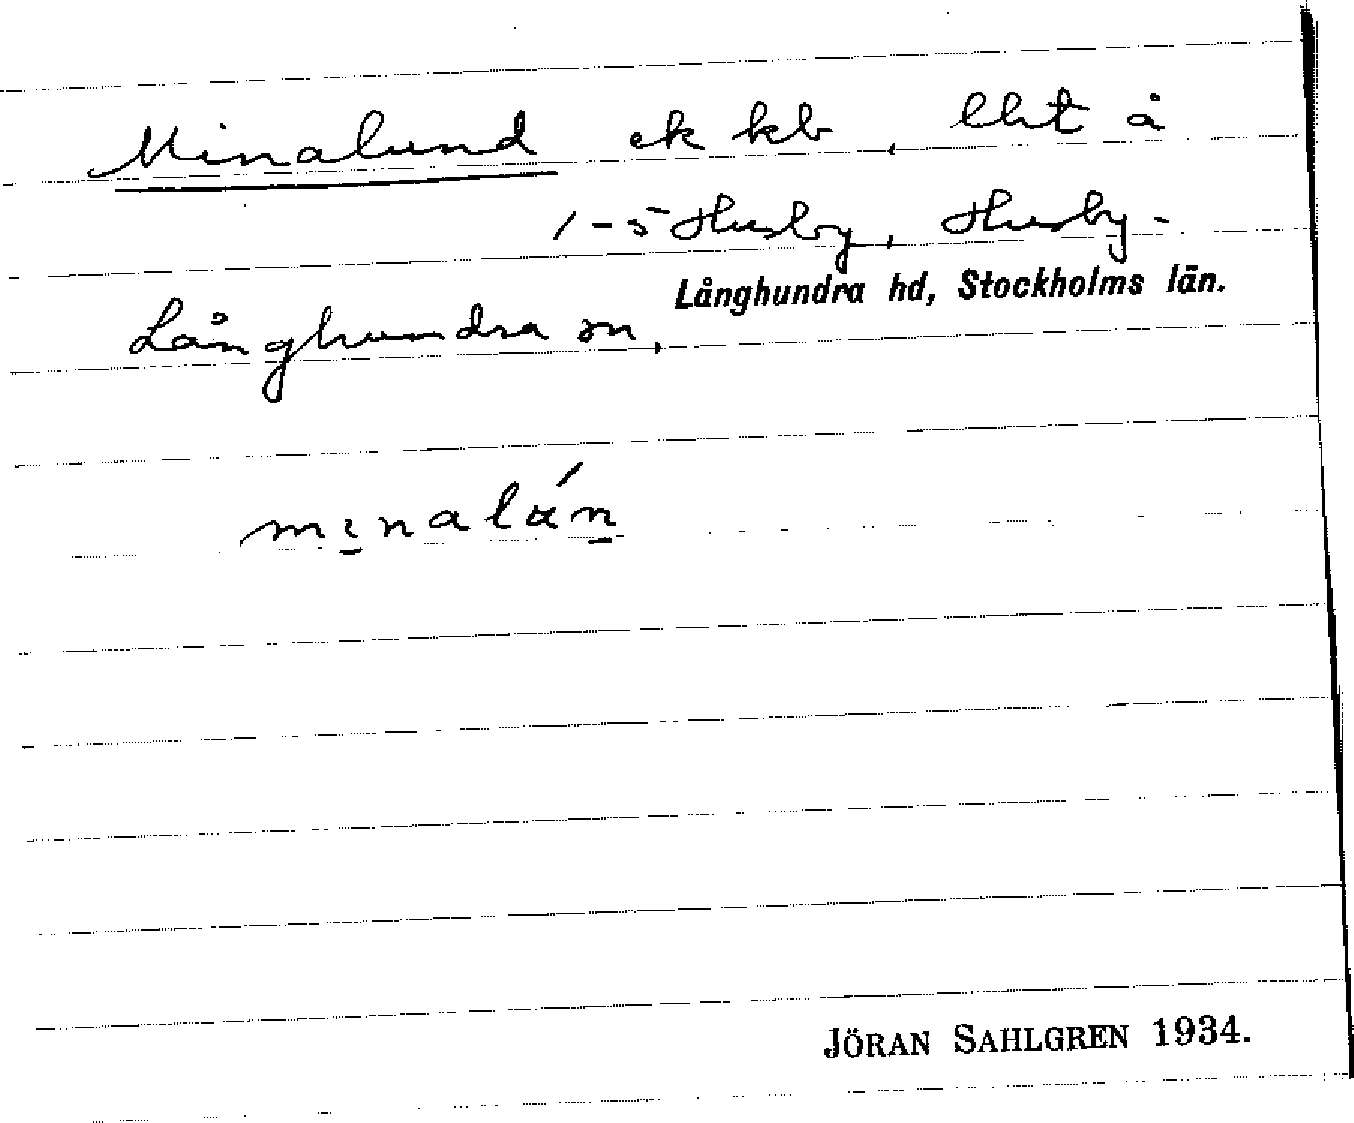 Minalund ek kb, lht å
1-5 Husby, Husby-
Långhundra hd, Stockholms län.
Långhundra sn,
mınalán
JÖRAN SAHLGREN 1934.